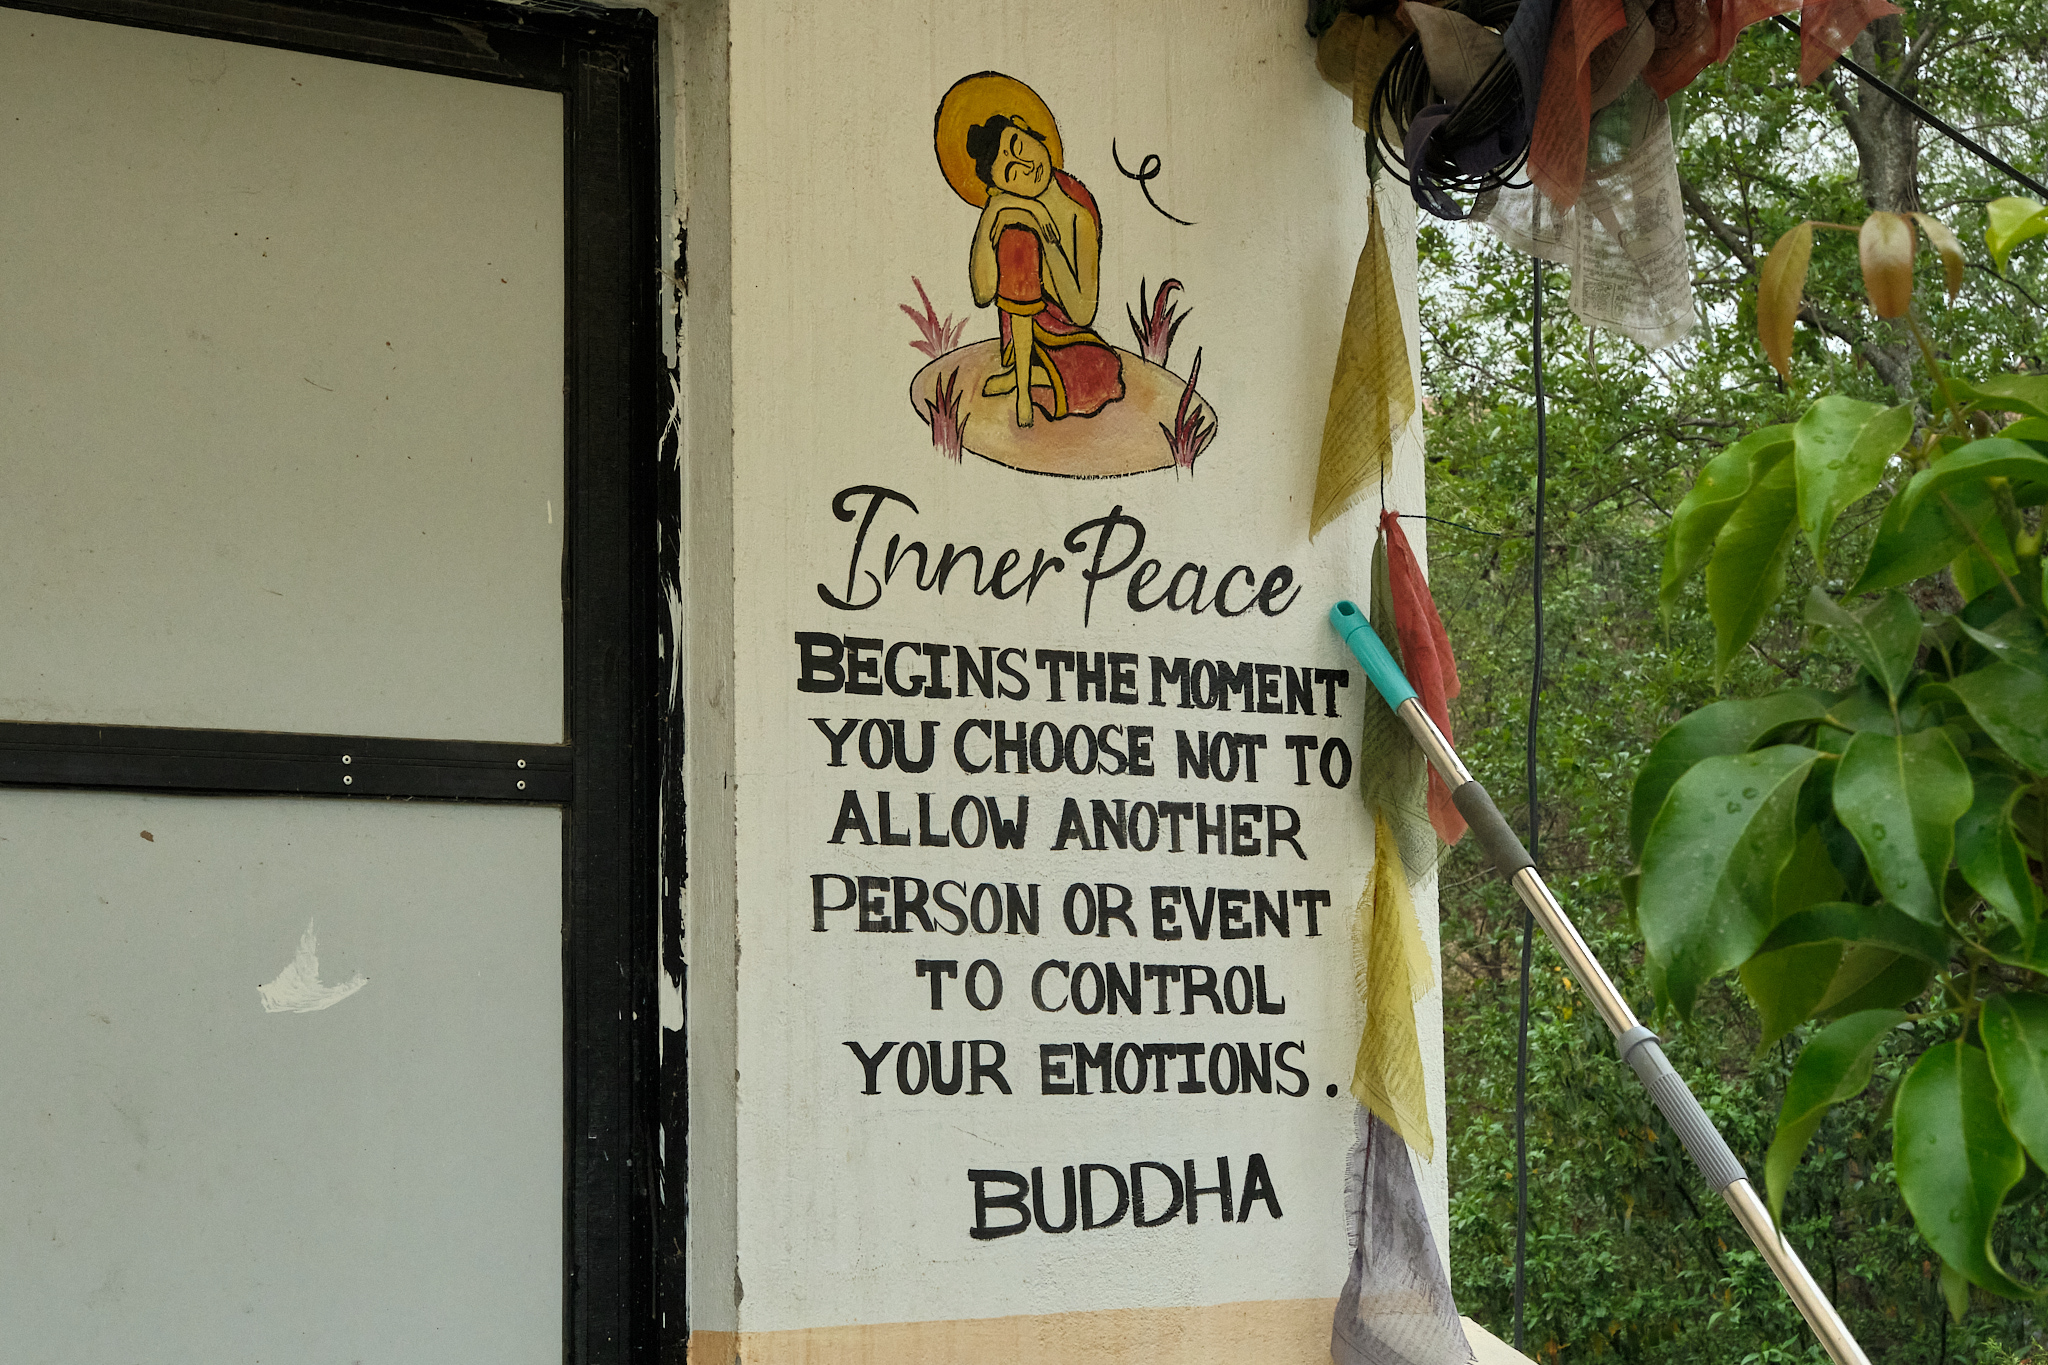 Inner Peace
BEGINS THE MOMENT
YOU CHOOSE NOT TO
ALLOW ANOTHER
PERSON OR EVENT
TO CONTROL
YOUR EMOTIONS.
BUDDHA